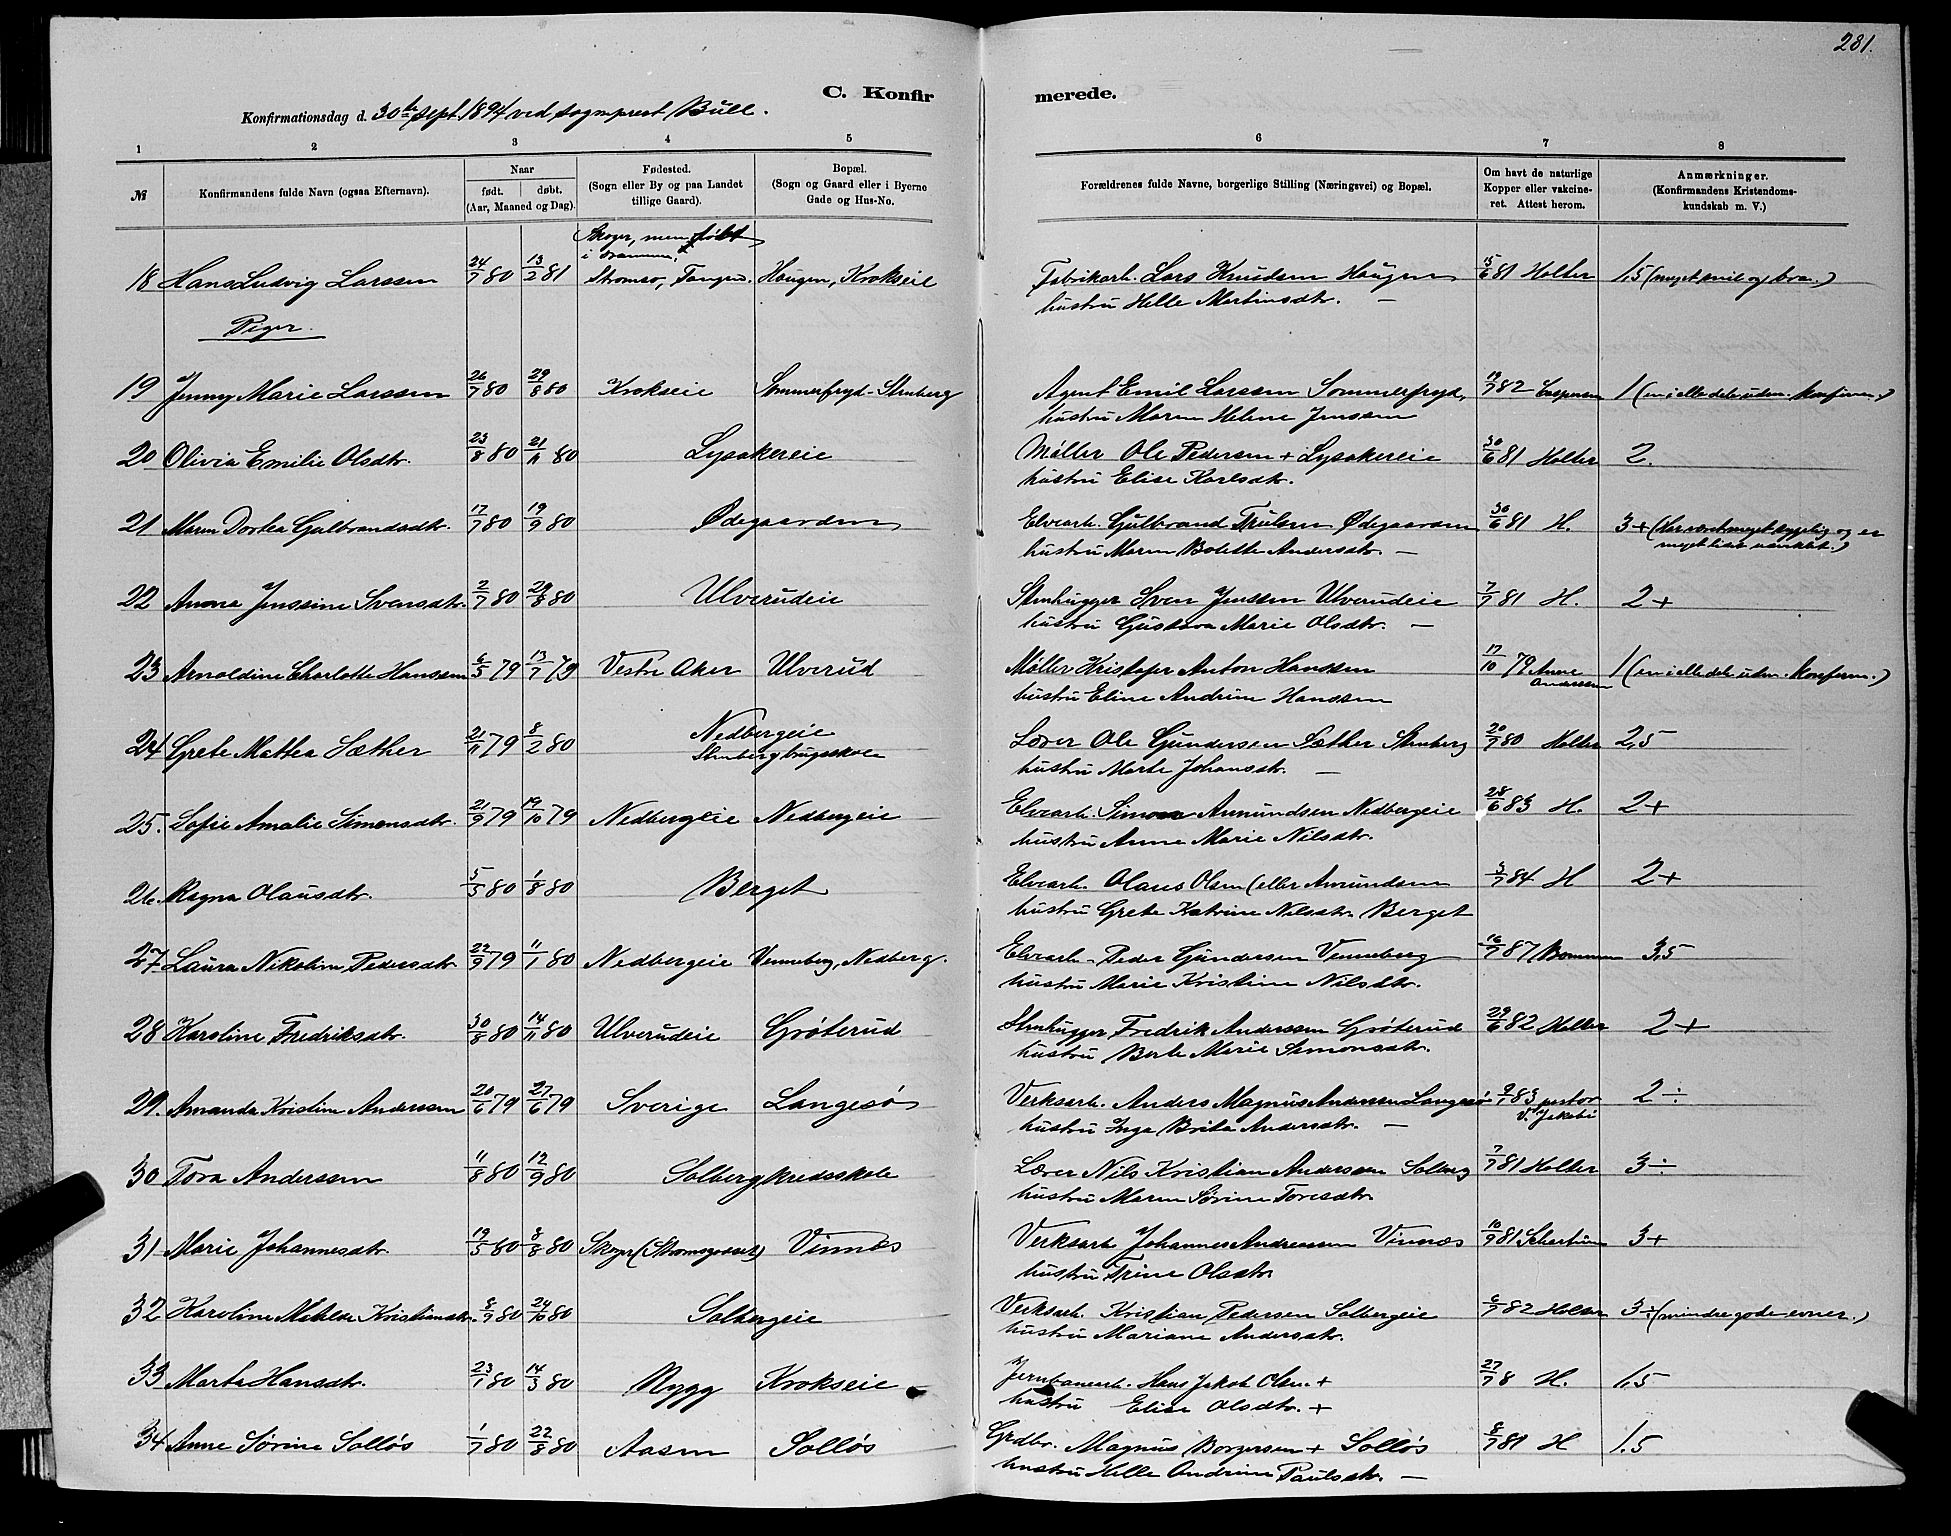 281.
C. Konfirmerede.
Konfirmationsdag d. 30te Sept. 1894 ved sogneprest Bull.
1 2 3 4 5 6 7 8
№ Konfirmandens fulde Navn (ogsaa Efternavn). Naar født. døbt. (Aar, Maaned og Dag). Fødested. (Sogn eller By og paa Landet tillige Gaard). Bopæl. (Sogn og Gaard eller i Byerne Gade og Hus-No. Forældrenes fulde Navne, borgerlige Stilling (Næringsvei) og Bopæl. Om havt de naturlige Kopper eller vakcineret. Attest herom. Anmærkninger. (Konfirmandens Kristendomskundskab m. V.)
Skoger, men født
i Drammen
18 Hans Ludvig Larssen 24/7 80 13/2 81 Strømsø, Tangen. Haugen, Krokseie Fabrikarb. Lars Knudsen Haugen 15/6 81 Holter 1,5 (meget snil og bra.)
hustru Helle Martinsdtr. —
Piger.
19 Jenny Marie Larssen 26/7 80 29/8 80 Krokseie Sommerfryd-Stenberg Agent Emil Larssen Sommerfryd, 19/7 82 Caspersen 1 (en i alle dele udm. konfirm.)
hustru Maren Helene Jenssen
20 Olivia Emilie Olsdtr. 23/8 80 21/11 80 Lysakereie Møller Ole Pedersen + Lysakereie 30/6 81 Holter 2.
hustru Elise Karlsdtr.
21 Maren Dortea Gulbrandsdtr. 17/7 80 19/9 80 Ødegaarden Elvearb. Gulbrand Trulsen Ødegaarden 30/6 81 H. 3+ (har været meget sygelig og er
hustru Maren Bolette Andersdtr. — meget lidet udviklet.)
22 Anna Jenssine Svensdtr. 2/7 80 29/8 80 Ulverudeie Stenhugger Sven Jenssen Ulverudeie 7/7 81 H. 2+
hustru Gustava Marie Olsdtr. —
23 Arnoldine Charlotte Hanssen 6/5 79 13/7 79 Vestre Aker Ulverud Møller Kristofer Anton Hanssen 17/10 79 Anne Anderssen 1 (en i alle dele udm. konfirm.)
hustru Eline Andrine Hanssen
24 Grete Mattea Sæther 21/11 79 8/2 80 Nedbergeie Lærer Ole Gundersen Sæther Stenberg 20/7 80 Holter 2,5
Stenberg brugsskole hustru Marte Johansdtr. —
25. Sofie Amalie Simensdtr. 21/9 79 19/10 79 Nedbergeie Nedbergeie Elvearb. Simon Amundsen Nedbergeie 28/6 83 H. 2+
hustru Anne Marie Nilsdtr.
26. Ragna Olausdtr. 5/5 80 1/8 80 Berget Elvearb. Olaus Olsen (eller Amundsen 3/7 84 H 2+
hustru Grete Katrine Nilsdtr. Berget
27 Laura Nikoline Pedersdtr 22/9 79 11/1 80 Nedbergeie Venneberg, Nedberg. Elvearb. Peder Gundersen Venneberg 16/7 87 Bommen 3,5
hustru Marie Kristine Nilsdtr.
28 Karoline Fredriksdtr. 30/8 80 14/11 80 Ulverudeie Grøterud Stenhugger Fredrik Anderssen Grøterud 29/6 82 Holter 2+
hustru Berte Marie Simonsdtr.
29. Amanda Kristine Anderssen 20/6 79 27/6 79 Sverige Langesø Verksarb. Anders Magnus Anderssen Langesø 9/1 83 pastor V. Jakobi 2÷
hustru Inga Brita Andersdtr. —
30 Tora Anderssen 11/8 80 12/9 80 Solberg kredsskole Lærer Nils Kristian Anderssen Solberg 7/7 81 Holter 3÷
hustru Maren Sørine Toresdtr.
31 Marie Johannesdtr. 19/5 80 8/8 80 Skoger (Strømsgodset) Vinnæs Verksarb Johannes Andreassen Vinnæs 10/9 81 3+
hustru Trine Olsdtr
32 Karoline Matilde Kristiansdtr. 8/9 80 24/10 80 Solbergeie Verksarb. Kristian Pedersen Solbergeie 6/7 82 Holter 3÷ (mindre gode evner.)
hustru Mariane Andersdtr.
33 Marta Hansdtr. 23/1 80 14/3 80 Rygg Krokseie Jernbanearb. Hans Jakob Olsen + 27/7 8 H. 1,5
hustru Elise Olsdtr. +
34 Anne Sørine Solløs 1/7 80 22/8 80 Aasen Solløs Grdbr. Magnus Borgersen + Solløs 8/7 81 H 1.5
hustru Helle Andrine Paulsdtr. —